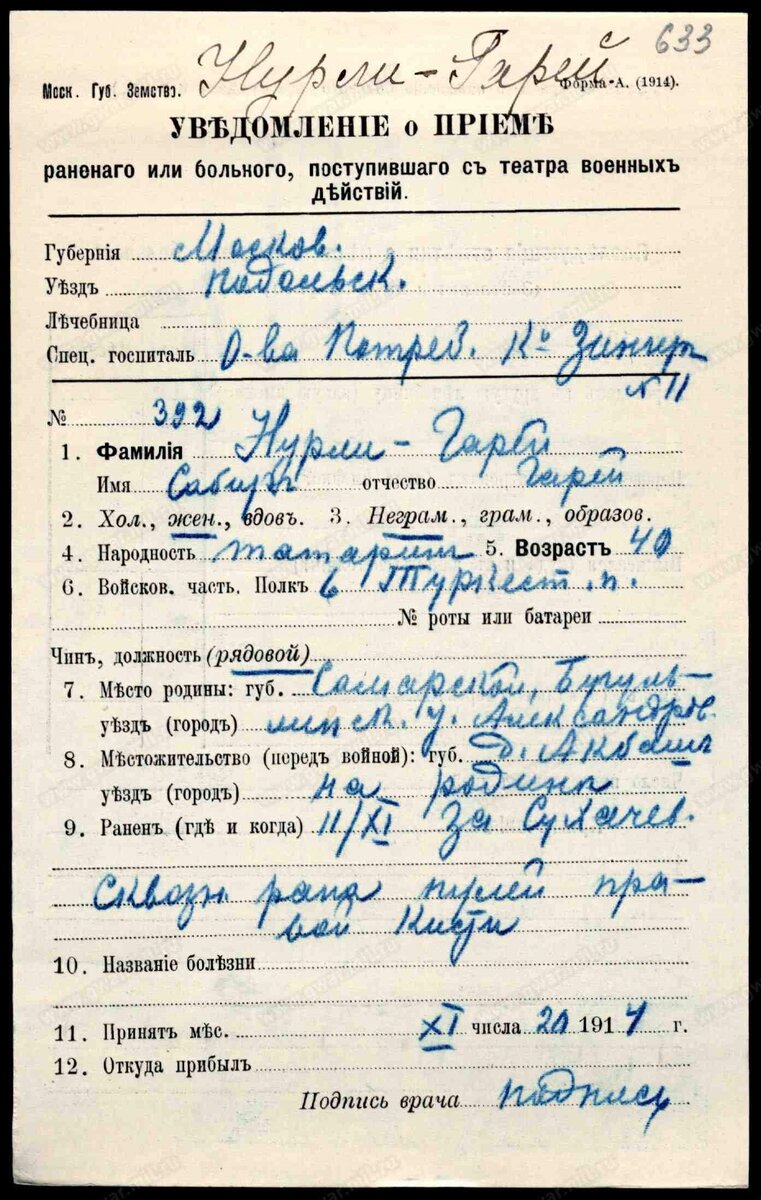 633
Нурли-Гарей
Моск. Губ. Земство. Форма А. (1914).
УВѢДОМЛЕНІЕ о ПРІЕМѢ
раненаго или больного, поступившаго съ театра военныхъ
дѣйствій.
Губернія Москов.
Уѣздъ Подольск.
Лѣчебница
Спец. госпиталь О-ва Потреб. Ко Зингер
№ 11
№ 392
1. Фамилія Нурли-Гарей
Имя Сабиръ отчество Гарей
2. Хол., жен., вдовъ. 3. Неграм., грам., образов.
4. Народность татарин 5. Возрастъ 40
6. Войсков. часть. Полкъ 6 Туркест. п.
№ роты или батареи
Чинъ, должность (рядовой)
7. Мѣсто родины: губ. Самарской, Бугуль-
уѣздъ (городъ) минск. у. Александров.
8. Мѣстожительство (передъ войной): губ. д. Акбаш
уѣздъ (городъ) на родинѣ
9. Раненъ (гдѣ и когда) 11/XI За Сухачев.
Сквозн рана пулей пра-
вой кисти
10. Названіе болѣзни
11. Принятъ мѣс. XI числа 20 1914 г.
12. Откуда прибылъ
Подпись врача подпись